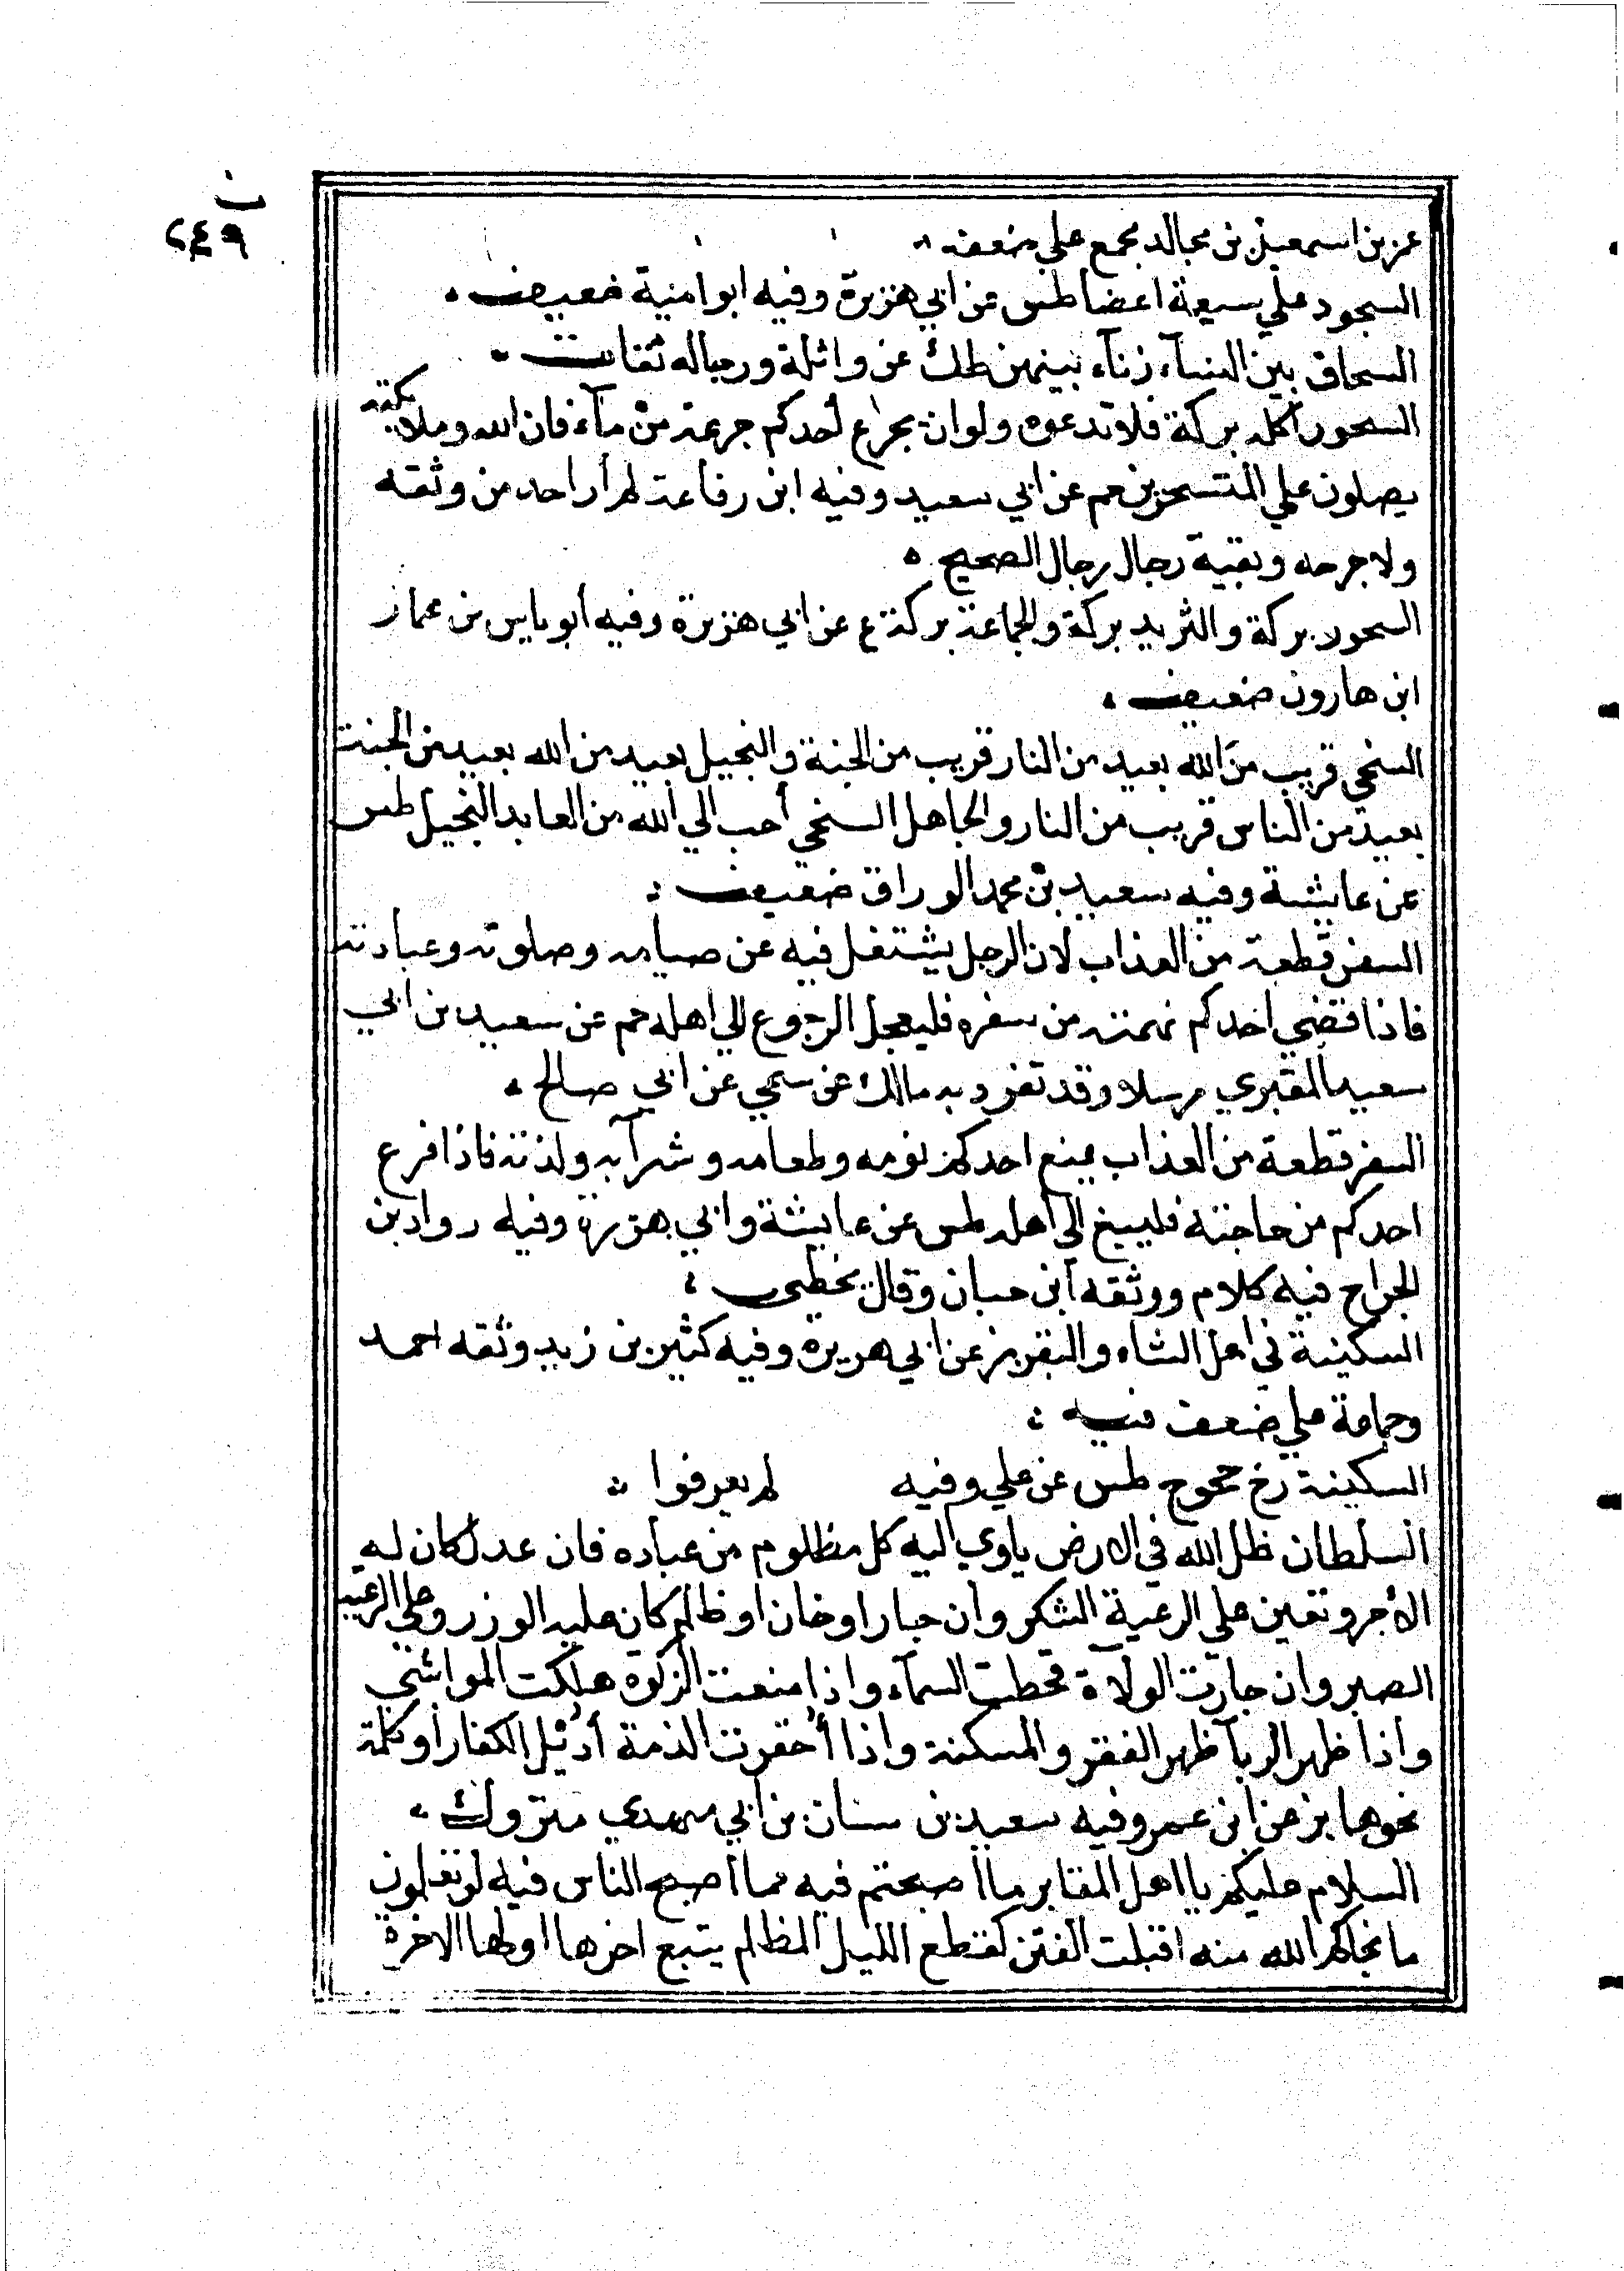 ن
٢٤٩
عمر بن اسمعيل بن مجالد مجمع علي ضعفه
السجود علي سبعة اعضا طس عن ابي هريرة وفيه ابو امية ضعيف
السحاق بين النسآء زنآء بينهن طك عن واثلة ورجاله ثقات
السحور أكله بركة فلا تدعوه ولو ان يجرع أحدكم جرعة من مآء فان الله وملائكته
يصلون علي المتسحرين حم عن ابي سعيد وفيه ابن رفاعة لم أر احد من وثقه
ولا جرحه وبقية رجال رجال الصحيح
السحور بركة والثريد بركة والجماعة بركة ع عن ابي هريرة وفيه أبو ياس بن عمار
ابن هارون ضعيف
السخي قريب من الله بعيد من النار قريب من الجنة والبخيل بعيد من الله بعيد من الجنة
بعيد من الناس قريب من النار والجاهل السخي أحب الي الله من العابد البخيل طس
عن عايشة وفيه سعيد بن محمد الوراق ضعيف
السفر قطعة من العذاب لان الرجل يشتغل فيه عن صيامه وصلوته وعبادته
فاذا قضي احدكم نهمته من سفره فليعجل الرجوع الي اهله حم عن سعيد بن ابي
سعيد المقبري مرسلا وقد تفرد به مالك عن سمي عن ابي صالح
السفر قطعة من العذاب يمنع احدكم نومه وطعامه وشرآبه ولذته فاذا فرع
احدكم من حاجته فليسرع الي أهله طس عن عايشة وابي هريرة وفيه رواد بن
الجراح فيه كلام ووثقه ابن حبان وقال يخطي
السكينة في اهل الشاء والبقر بز عن ابي هريرة وفيه كثير بن زيد وثقه احمد
وجماعة علي ضعف فيه
السكينة رخ خجوج طس عن علي وفيه لم يعرفوا
السلطان ظل الله في الارض ياوي اليه كل مظلوم من عباده فان عدل كان له
الأجر وتعين علي الرعية الشكر وان جار او خان او ظالم كان عليه الوزر وعلي الرعية
الصبر وان جارت الولآة قحطت السمآء واذا منعت الزكوة هلكت المواشي
واذا ظهر الربآ ظهر الفقر والمسكنة واذا أخقرت الذمة أديل الكفار أو كلمة
نحوها بز عن ابن عمر وفيه سعيد بن سنان بن ابي مهدي متروك
السلام عليكم يا اهل المقابر ما أصبحتم فيه مما أصبح الناس فيه لو تعلمون
ما نجاكم الله منه اقبلت الفتن كقطع الليل المظالم يتبع اخرها اولها الاخرة